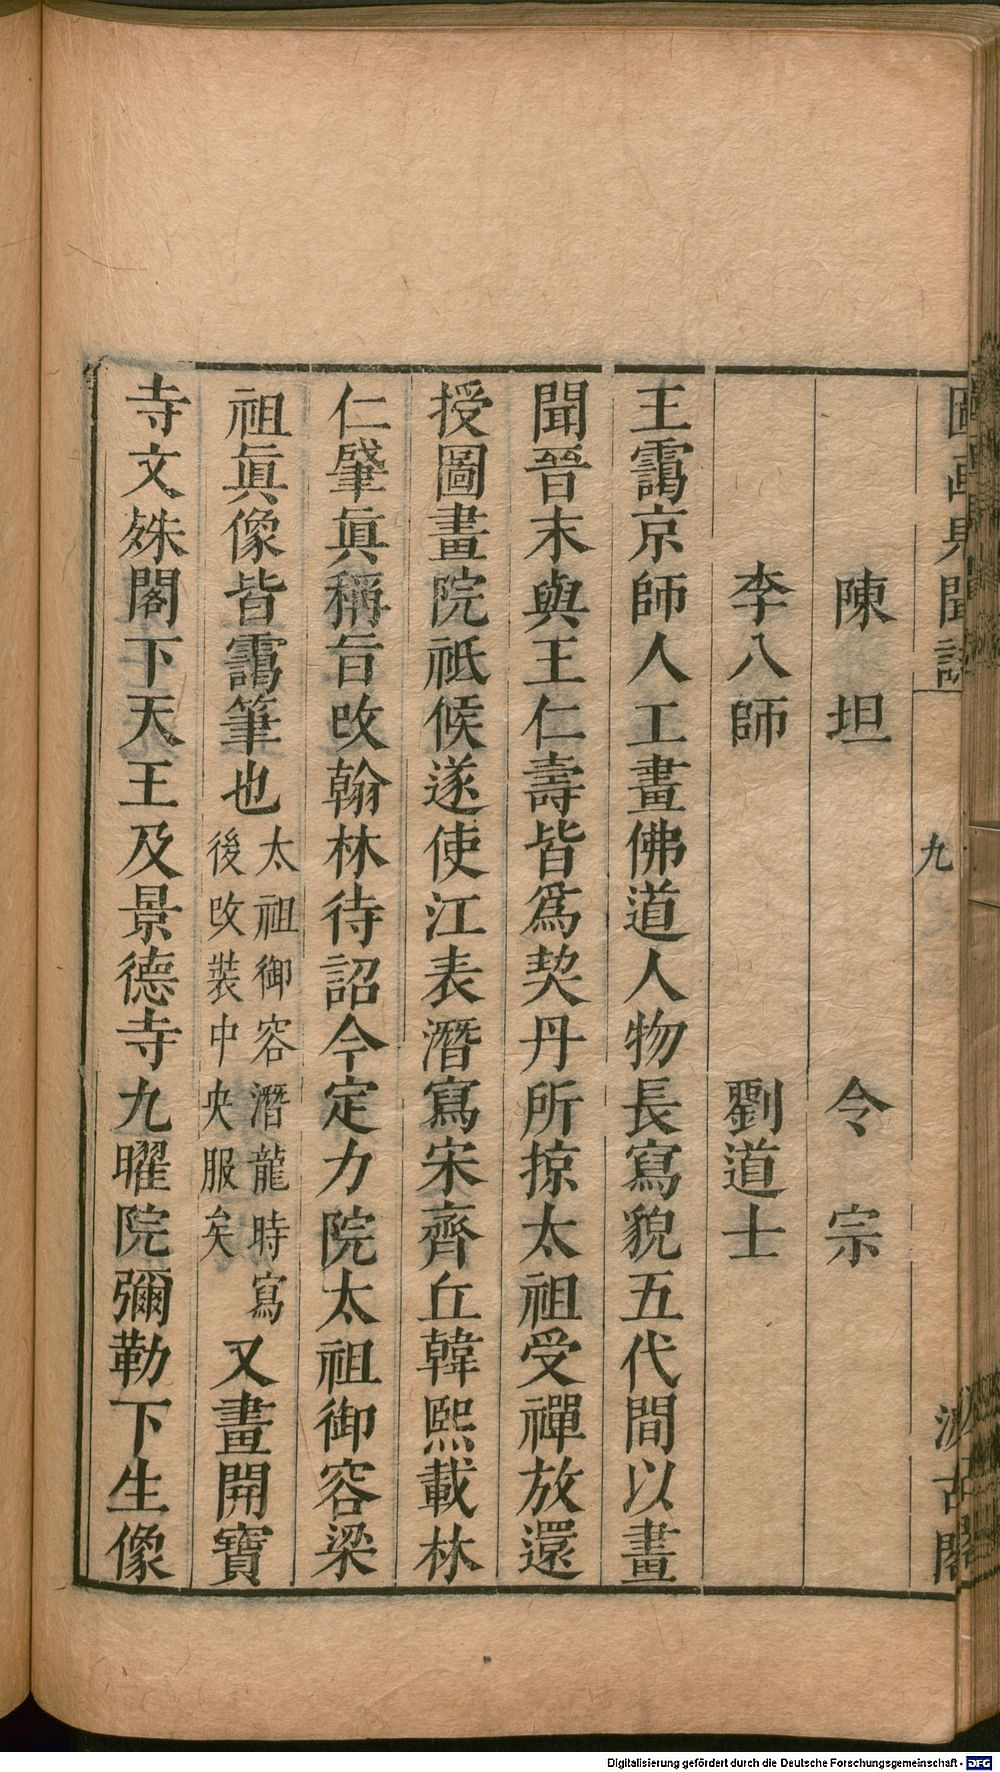 圖畫見聞誌
九
汲古閣
陳坦　令宗
李八師　劉道士
王靄京師人工畫佛道人物長寫貌五代間以畫
聞晉末與王仁壽皆爲契丹所掠太祖受禪放還
授圖畫院祗候遂使江表潛寫宋齊丘韓熙載林
仁肇眞稱旨改翰林待詔今定力院太祖御容梁
祖眞像皆靄筆也
太祖御容潛龍時寫
後改裝中央服矣
又畫開寶
寺文殊閣下天王及景德寺九曜院彌勒下生像
Digitalisierung gefördert durch die Deutsche Forschungsgemeinschaft - DFG